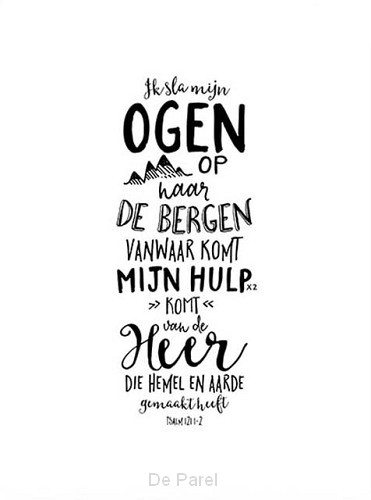 Ik sla mijn
OGEN
OP
naar
DE BERGEN
VANWAAR KOMT
MIJN HULP x2
» KOMT «
van de
Heer
DIE HEMEL EN AARDE
gemaakt heeft
PSALM 121 1-2
De Parel